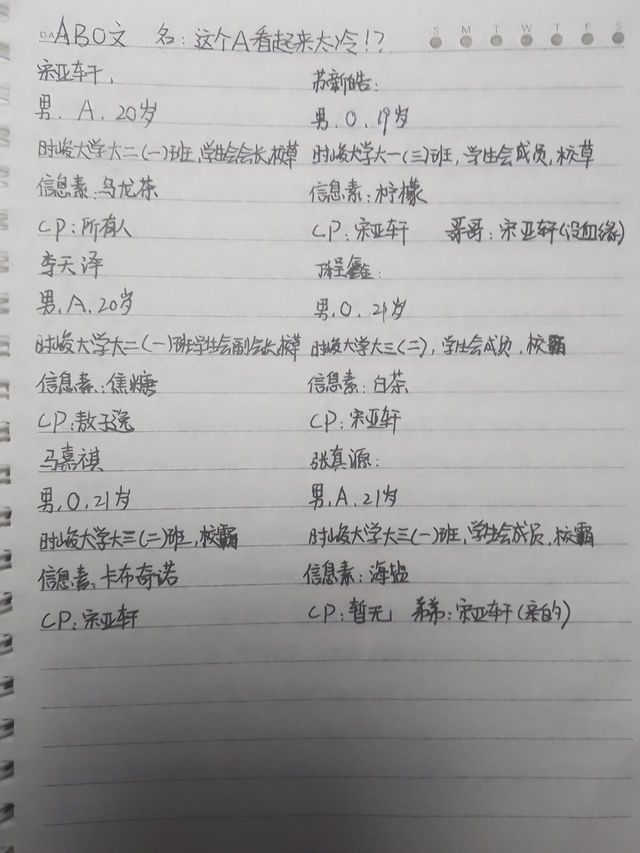 DA ABO文 名:这个A看起来太冷!?
S M T W T F S
宋亚轩:
男. A. 20岁
时峻大学大二(一)班,学生会会长,校草
信息素:乌龙茶
CP:所有人
苏新皓:
男. O. 19岁
时峻大学大一(三)班,学生会成员,校草
信息素:柠檬
CP:宋亚轩 哥哥:宋亚轩(没血缘)
李天泽
男. A. 20岁
时峻大学大二(一)班学生会副会长,校草
信息素:焦糖
CP:敖子逸
丁程鑫:
男. O. 21岁
时峻大学大三(二),学生会成员.校霸
信息素:白茶
CP:宋亚轩
马嘉祺
男, O. 21岁
时峻大学大三(二)班,校霸
信息素:卡布奇诺
CP:宋亚轩
张真源:
男, A. 21岁
时峻大学大三(一)班,学生会成员.校霸
信息素:海盐
CP:暂无 弟弟:宋亚轩(亲的)